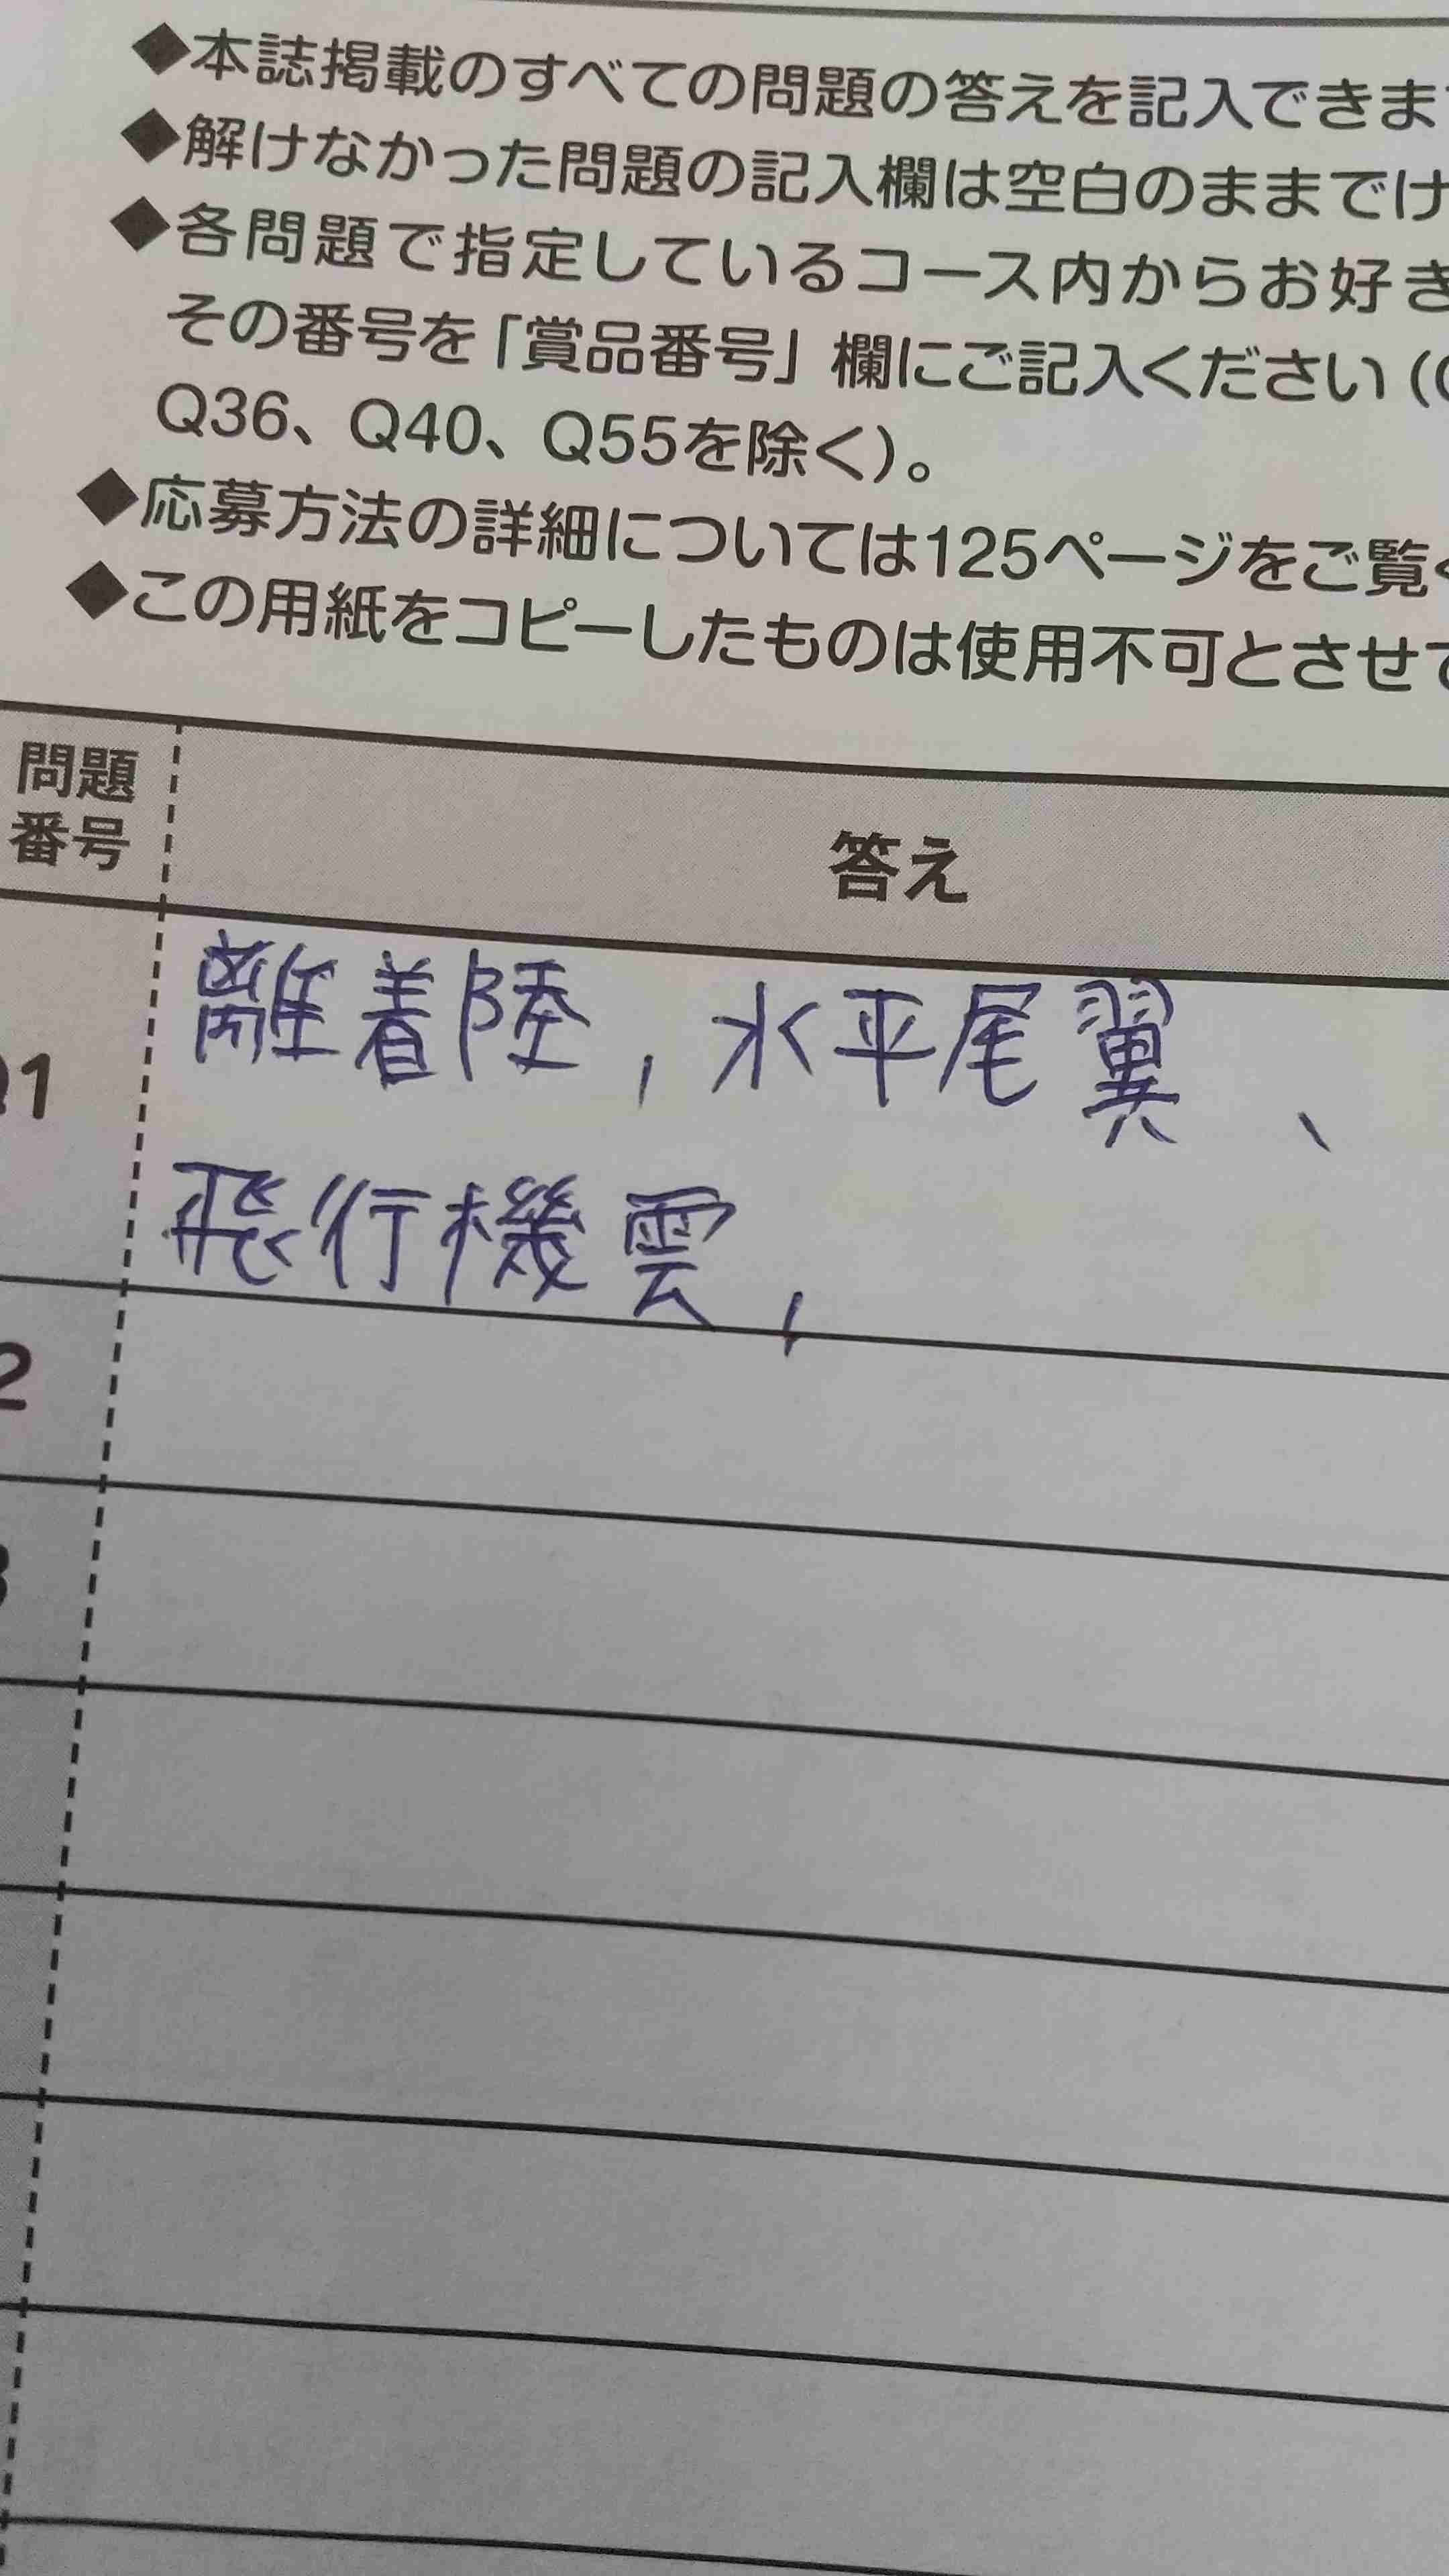 ◆本誌掲載のすべての問題の答えを記入できま
◆解けなかった問題の記入欄は空白のままでけ
◆各問題で指定しているコース内からお好き
その番号を「賞品番号」欄にご記入ください(
Q36、Q40、Q55を除く)。
◆応募方法の詳細については125ページをご覧く
◆この用紙をコピーしたものは使用不可とさせて
問題
番号
答え
離着陸,水平尾翼、
1
飛行機雲,
2
3